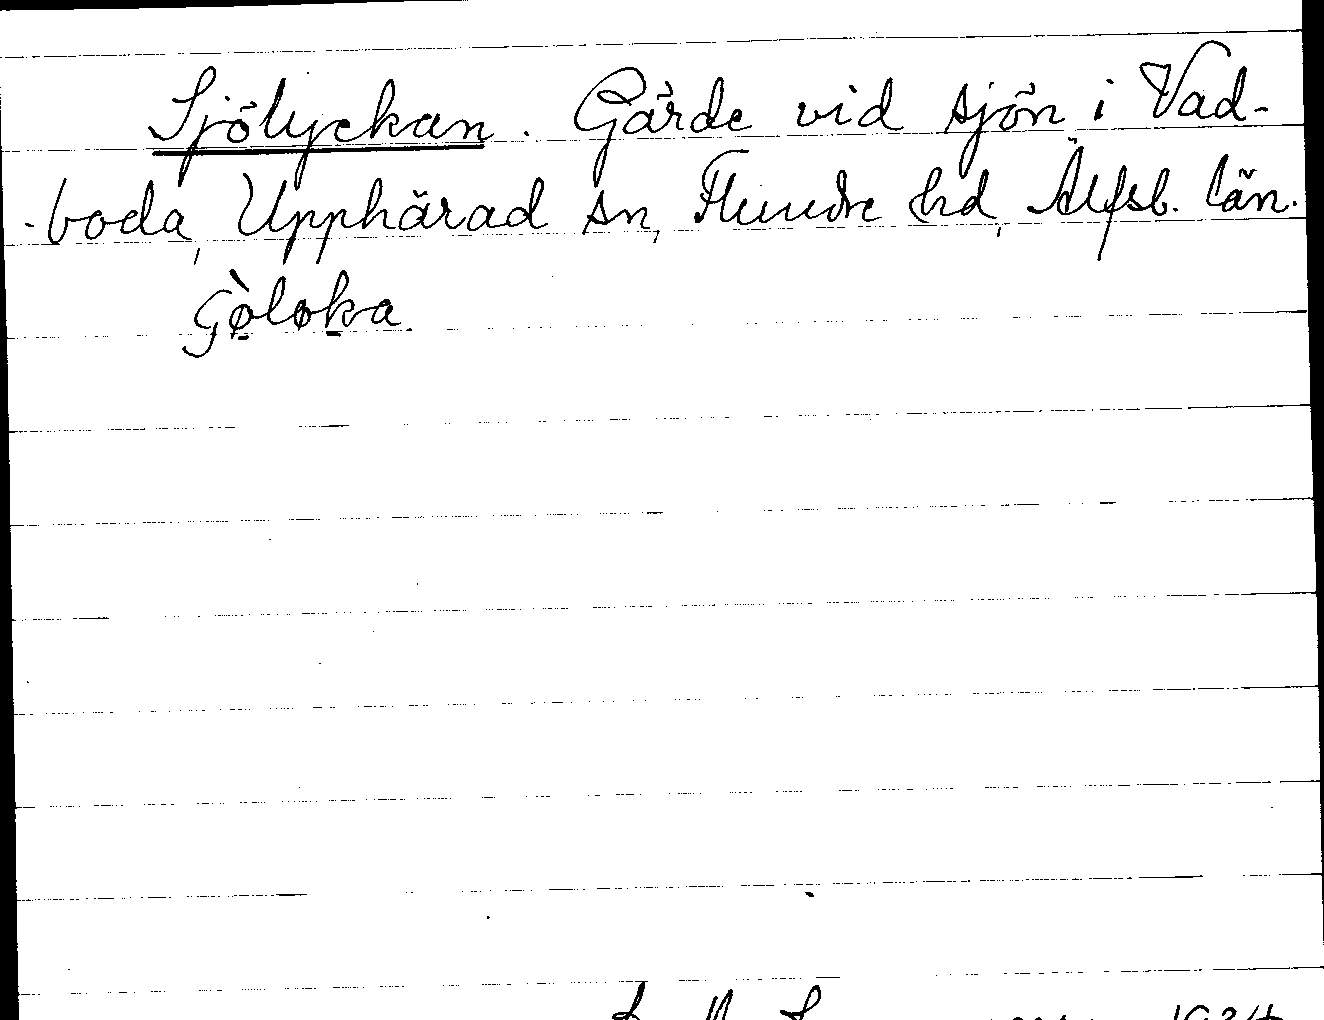 Sjölyckan. Gärde vid sjön i Vad-
-boda, Upphärad sn, Flundre hd, Älfsb. län.